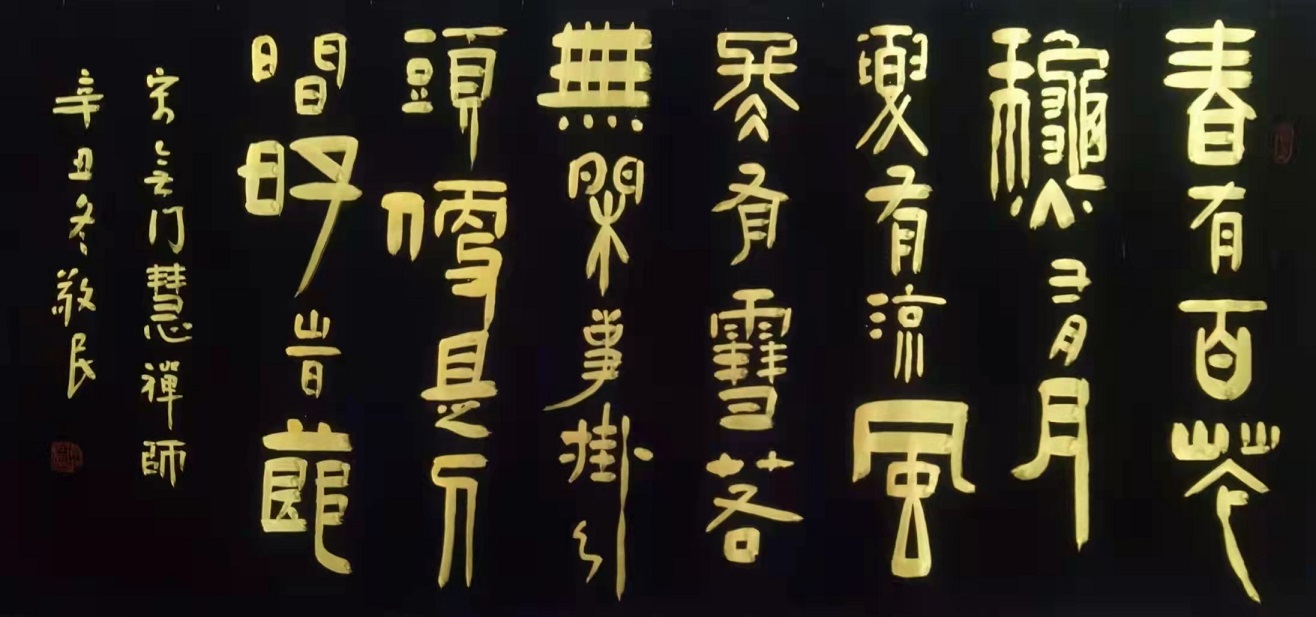 春有百花
龝有月
夏有涼風
冬有雪若
無閑事掛心
頭便是人
間好旹節
宋无门慧禪師
辛丑冬敬民